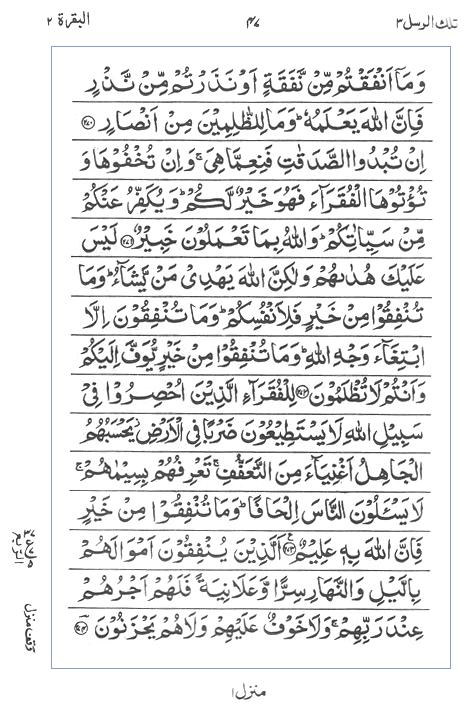 تلك الرسل ٣ ۴۷ البقرة ٢
وَمَآ اَنْفَقْتُمْ مِّنْ نَّفَقَةٍ اَوْ نَذَرْتُمْ مِّنْ نَّذْرٍ
فَاِنَّ اللّٰهَ يَعْلَمُهٗ ؕ وَمَا لِلظّٰلِمِيْنَ مِنْ اَنْصَارٍ ﴿۲۷۰﴾
اِنْ تُبْدُوا الصَّدَقٰتِ فَنِعِمَّا هِىَ ۚ وَاِنْ تُخْفُوْهَا وَ
تُؤْتُوْهَا الْفُقَرَآءَ فَهُوَ خَيْرٌ لَّكُمْ ؕ وَيُكَفِّرُ عَنْكُمْ
مِّنْ سَيِّاٰتِكُمْ ؕ وَاللّٰهُ بِمَا تَعْمَلُوْنَ خَبِيْرٌ ﴿۲۷۱﴾ لَيْسَ
عَلَيْكَ هُدٰىهُمْ وَلٰكِنَّ اللّٰهَ يَهْدِىْ مَنْ يَّشَآءُ ؕ وَمَا
تُنْفِقُوْا مِنْ خَيْرٍ فَلِاَنْفُسِكُمْ ؕ وَمَا تُنْفِقُوْنَ اِلَّا
ابْتِغَآءَ وَجْهِ اللّٰهِ ؕ وَمَا تُنْفِقُوْا مِنْ خَيْرٍ يُّوَفَّ اِلَيْكُمْ
وَاَنْتُمْ لَا تُظْلَمُوْنَ ﴿۲۷۲﴾ لِلْفُقَرَآءِ الَّذِيْنَ اُحْصِرُوْا فِىْ
سَبِيْلِ اللّٰهِ لَا يَسْتَطِيْعُوْنَ ضَرْبًا فِى الْاَرْضِ يَحْسَبُهُمُ
الْجَاهِلُ اَغْنِيَآءَ مِنَ التَّعَفُّفِ ۚ تَعْرِفُهُمْ بِسِيْمٰهُمْ ۚ
لَا يَسْـَٔلُوْنَ النَّاسَ اِلْحَافًا ؕ وَمَا تُنْفِقُوْا مِنْ خَيْرٍ
فَاِنَّ اللّٰهَ بِهٖ عَلِيْمٌ ﴿۲۷۳﴾ اَلَّذِيْنَ يُنْفِقُوْنَ اَمْوَالَهُمْ
بِالَّيْلِ وَالنَّهَارِ سِرًّا وَّعَلَانِيَةً فَلَهُمْ اَجْرُهُمْ
عِنْدَ رَبِّهِمْ ۚ وَلَا خَوْفٌ عَلَيْهِمْ وَلَا هُمْ يَحْزَنُوْنَ ﴿۲۷۴﴾
وقف منزل
منزل ١